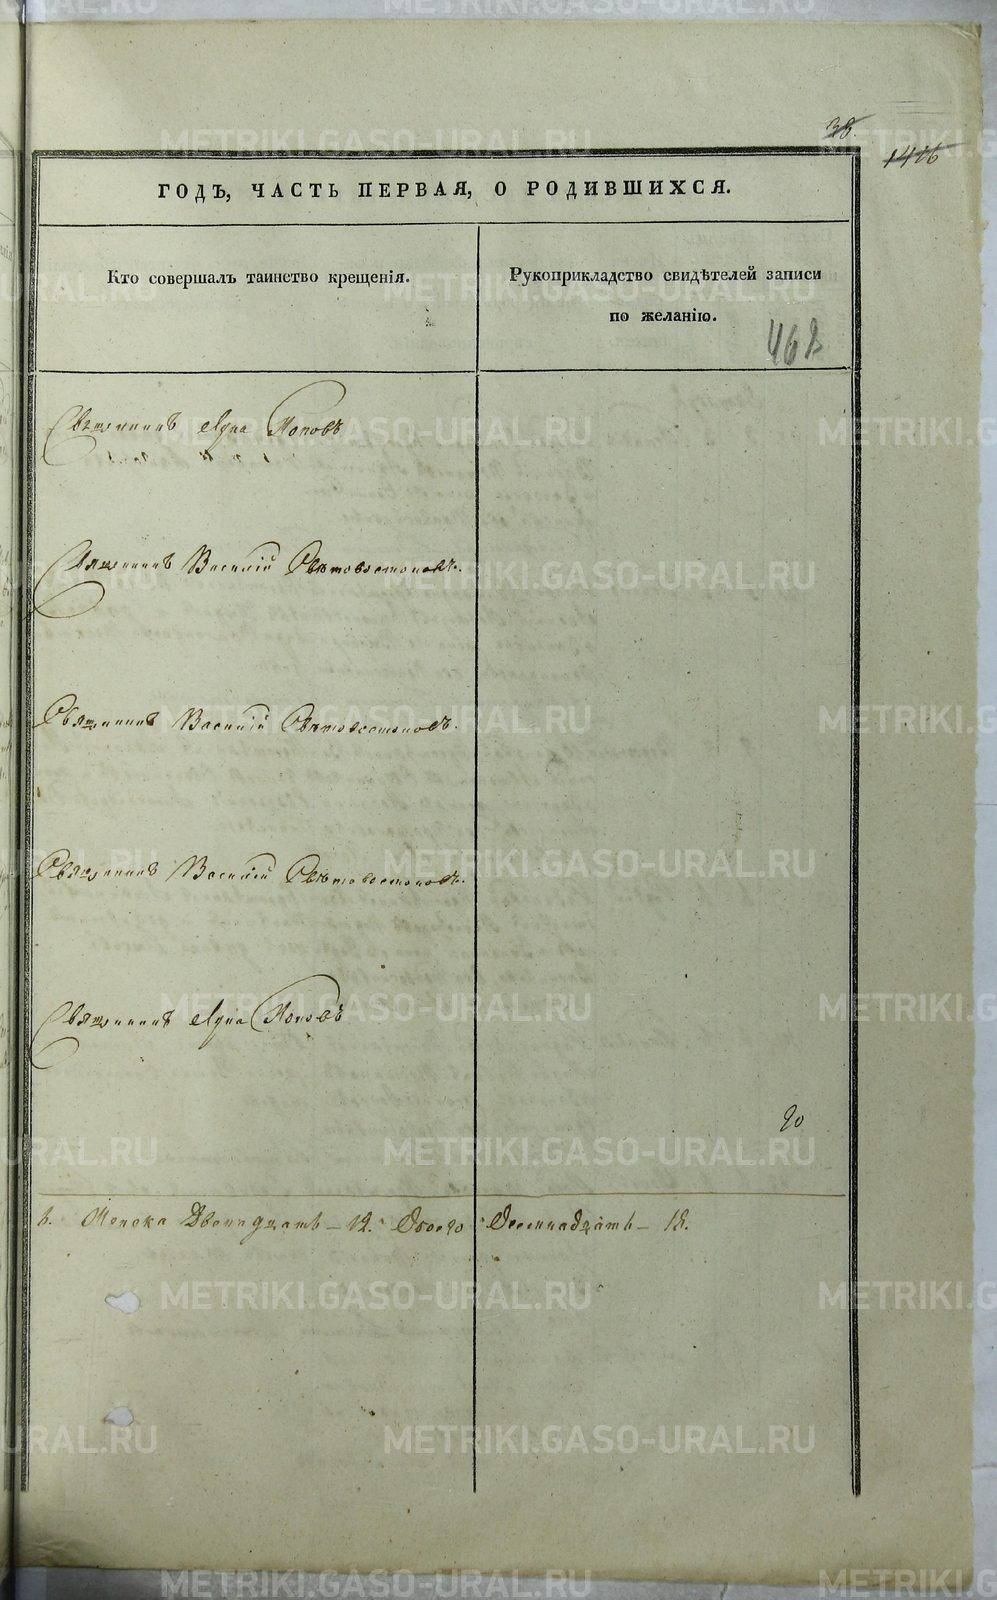 38.
1416
ГОДЪ, ЧАСТЬ ПЕРВАЯ, О РОДИВШИХСЯ.
Кто совершалъ таинство крещенія.
Рукоприкладство свидѣтелей записи
по желанію.
468
Священникъ Поповъ
Священникъ Василій Свѣтовостоковъ.
Священникъ Василій Свѣтовостоковъ.
Священникъ Василій Свѣтовостоковъ.
Священникъ Поповъ
20
6. Женска Двенадцать – 12. Обоего Осемнадцать – 18.
METRIKI.GASO-URAL.RU